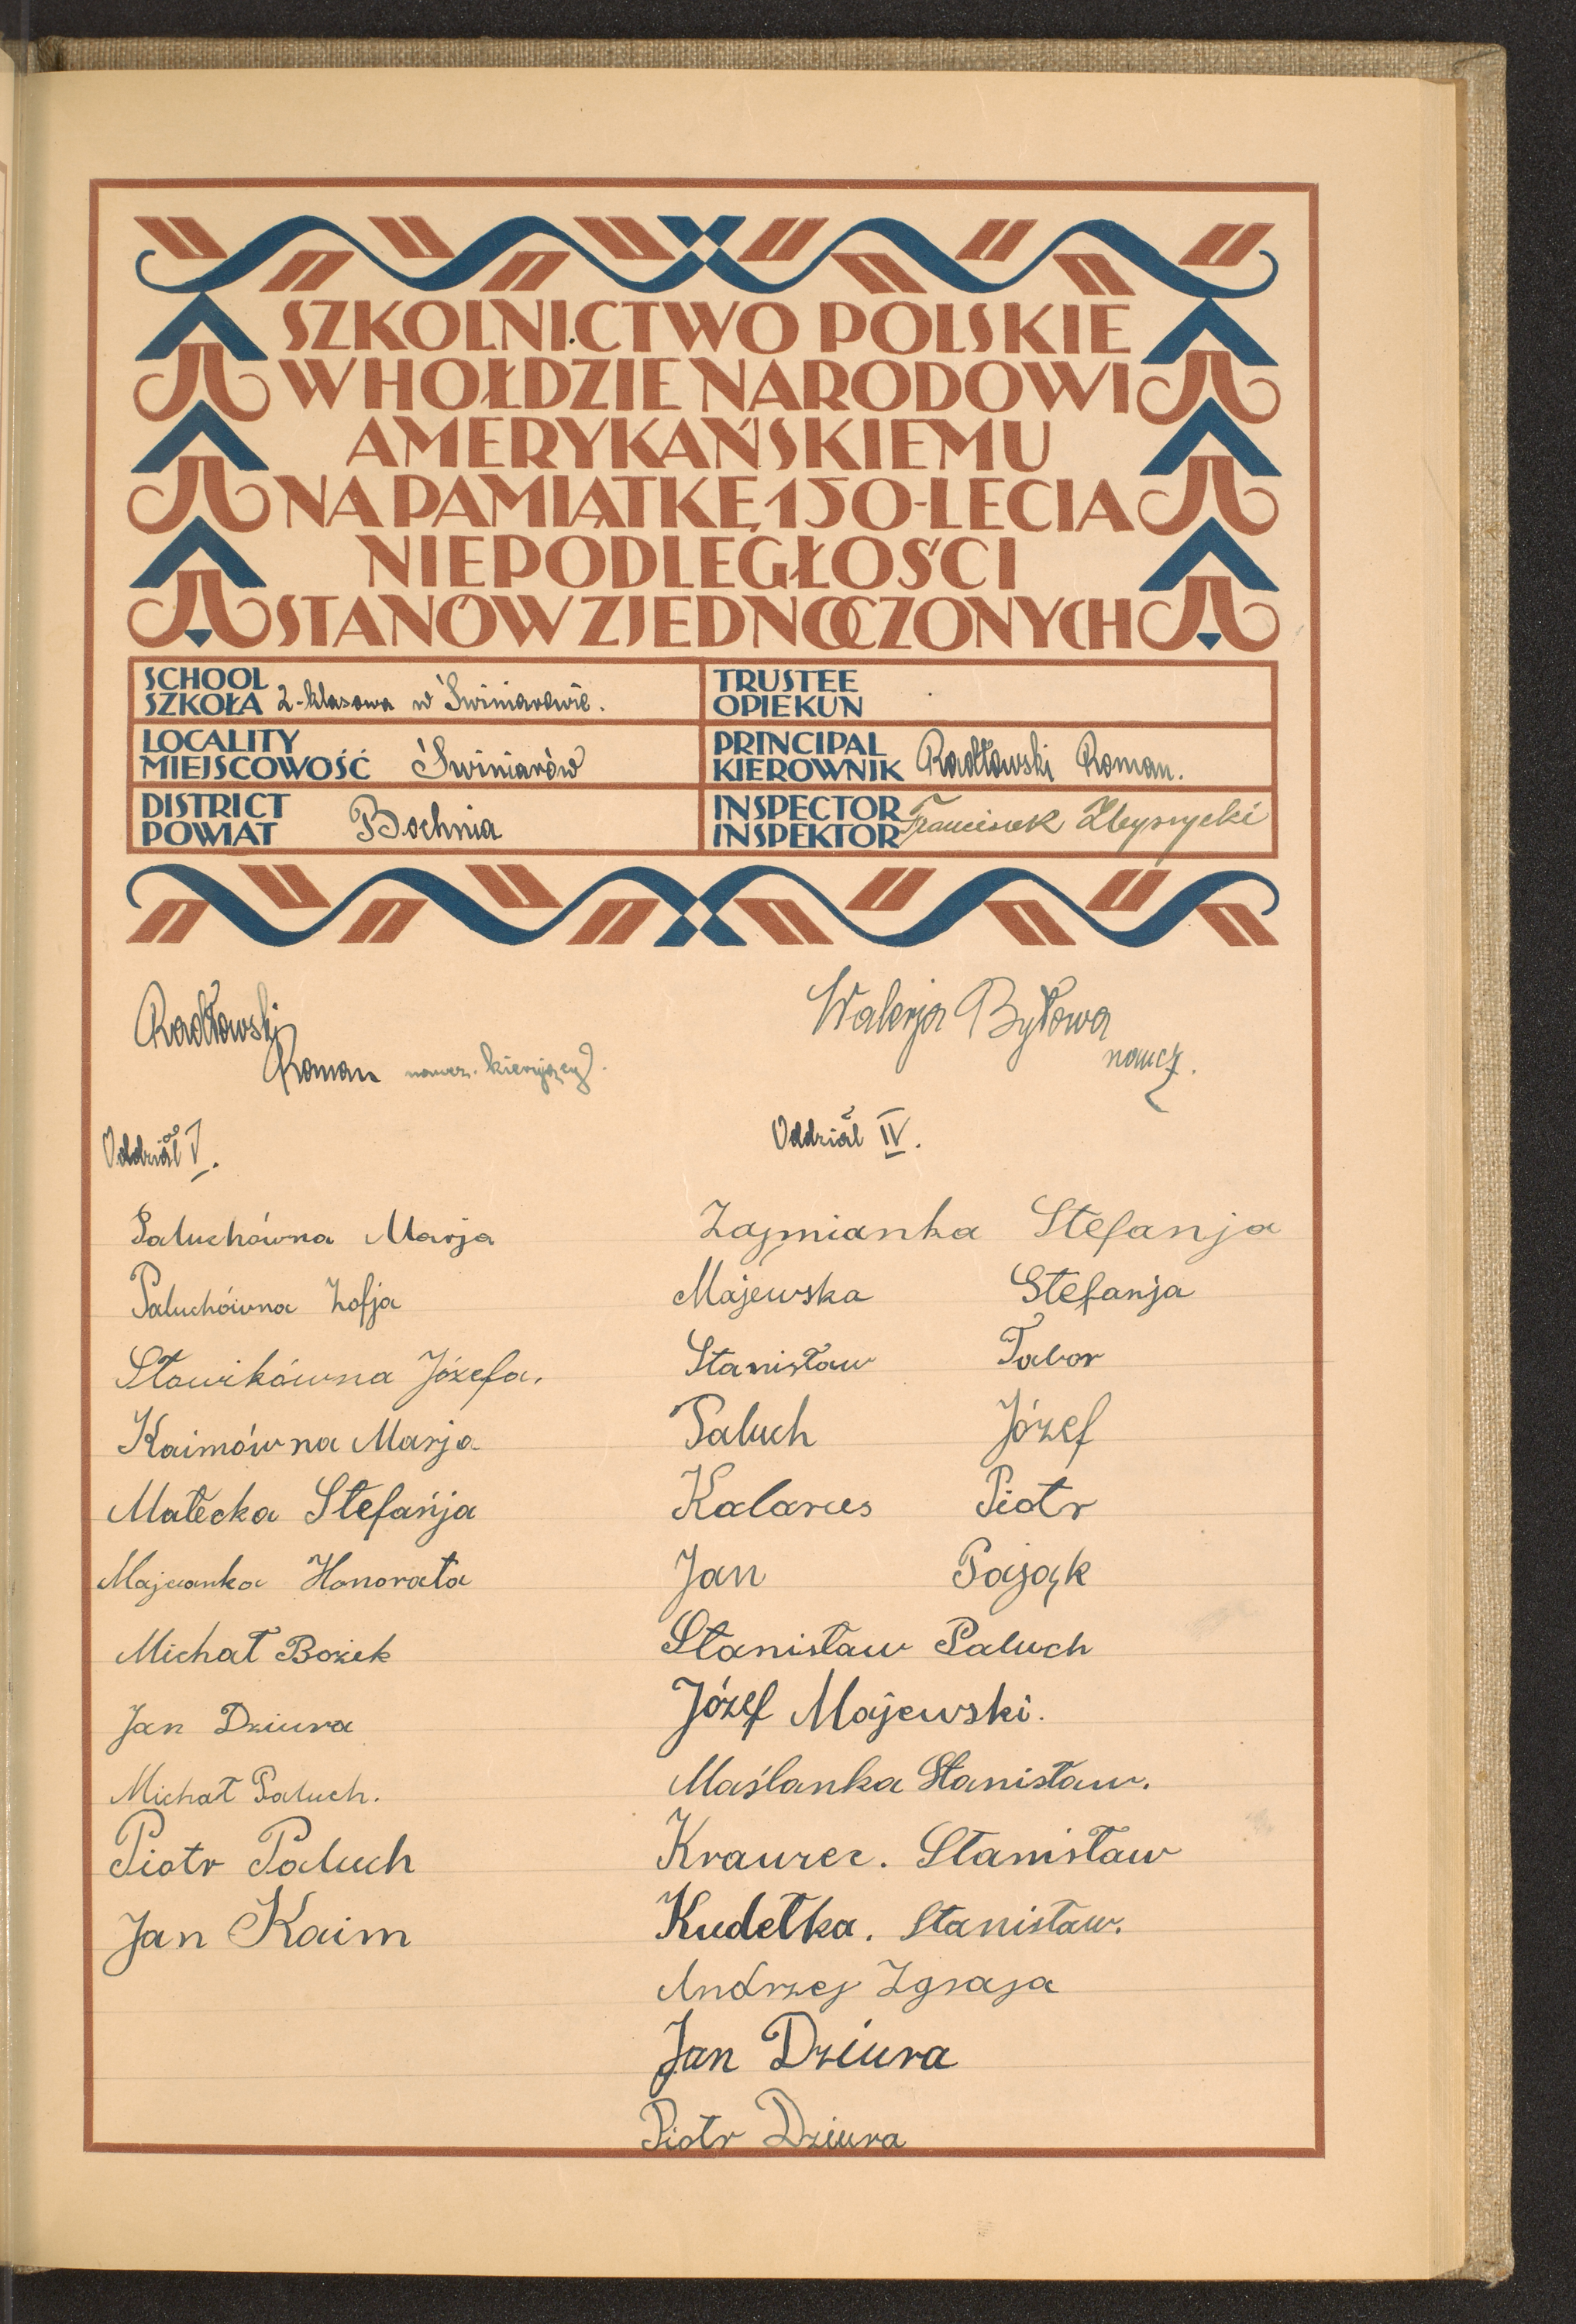 SZKOLNICTWO POLSKIE
W HOŁDZIE NARODOWI
AMERYKAŃSKIEMU
NA PAMIĄTKĘ 150-LECIA
NIEPODLEGŁOŚCI
STANÓW ZJEDNOCZONYCH
SCHOOL
SZKOŁA 2-klasowa w Świniarowie.
TRUSTEE
OPIEKUN
LOCALITY
MIEJSCOWOŚĆ Świniarów
PRINCIPAL
KIEROWNIK Radłowski Roman.
DISTRICT
POWIAT Bochnia
INSPECTOR
INSPEKTOR Franciszek
Radłowski
Roman naucz. kierujący.
Walerja Byłowa
naucz.
Oddział V.
Paluchówna Marja
Paluchówna Zofja
Słowikówna Józefa.
Kaimówna Marja
Małecka Stefanja
Majcanka Honorata
Michał Bożek
Jan Dziura
Michał Paluch.
Piotr Paluch
Jan Kaim
Oddział IV.
Stefanja
Majewska Stefanja
Stanisław Tabor
Paluch Józef
Kalarus Piotr
Jan Pająk
Stanisław Paluch
Józef Majewski.
Maślanka Stanisław.
Krawiec. Stanisław
Kudełka. Stanisław.
Andrzej Zgraja
Jan Dziura
Piotr Dziura